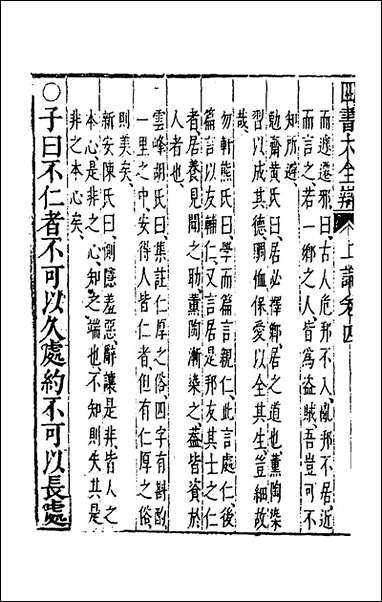 四書大全辯 上論卷四
而遽遷邪曰古人危邦不入亂邦不居近
而言之若一鄉之人皆為盜賊吾豈可不
知所避
勉齋黃氏曰居必擇鄉居之道也薰陶染
習以成其德賙恤保愛以全其生豈細故
哉
勿軒熊氏曰學而篇言親仁此言處仁後
篇言以友輔仁又言居是邦友其士之仁
者居養見聞之助薰陶漸染之益皆資於
人者也
雲峰胡氏曰集註仁厚之俗四字有斟酌
一里之中安得人皆仁者但有仁厚之俗
則美矣
新安陳氏曰惻隱羞惡辭讓是非皆人之
本心是非之心知之端也不知則失其是
非之本心矣
○子曰不仁者不可以久處約不可以長處